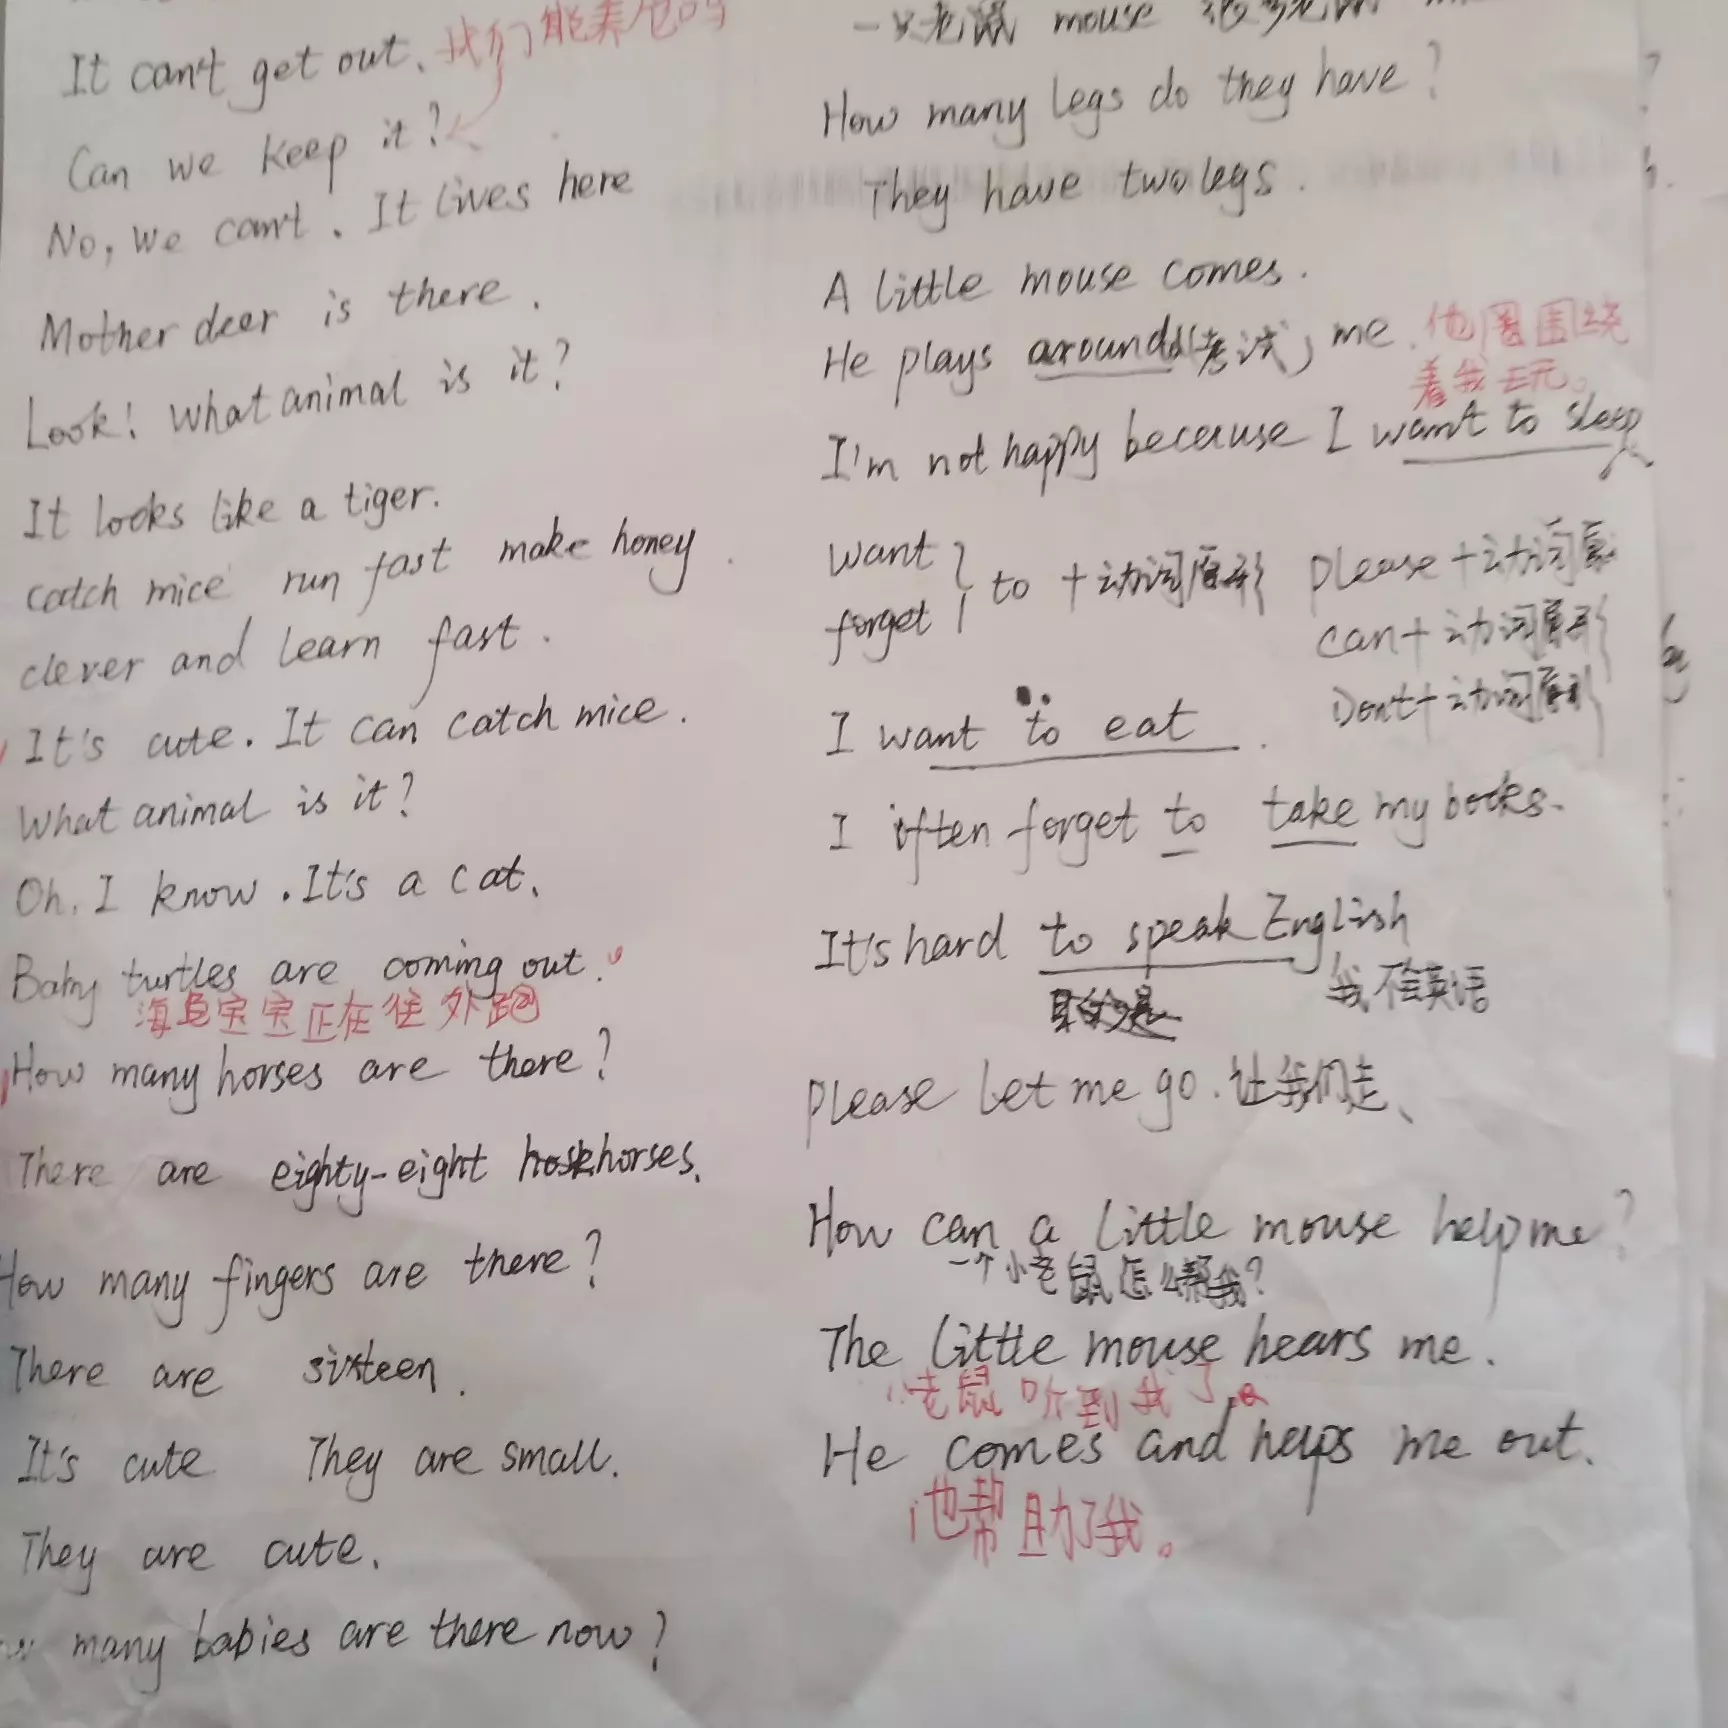 It can't get out. 我们能养它吗
Can we keep it?
No, we can't. It lives here
Mother deer is there.
Look! What animal is it?
It looks like a tiger.
catch mice run fast make honey
clever and learn fast.
It's cute. It can catch mice.
What animal is it?
Oh, I know. It's a cat.
Baby turtles are coming out.
海龟宝宝正在往外跑
How many horses are there?
There are eighty-eight horses.
How many fingers are there?
There are sixteen.
It's cute They are small.
They are cute.
many babies are there now?
一只老鼠 mouse 很多老鼠
How many legs do they have?
They have two legs.
A little mouse comes.
He plays around (考试) me. 他围绕
着我去玩。
I'm not happy because I want to sleep
want
forget } to + 动词原形
please + 动词原
can + 动词原形
Don't + 动词原形
I want to eat.
I often forget to take my books.
It's hard to speak English
我不会英语
Please let me go. 让我们走、
How can a little mouse help me?
一个小老鼠怎么帮我?
The little mouse hears me.
小老鼠听到我了。
He comes and helps me out.
他帮助了我。